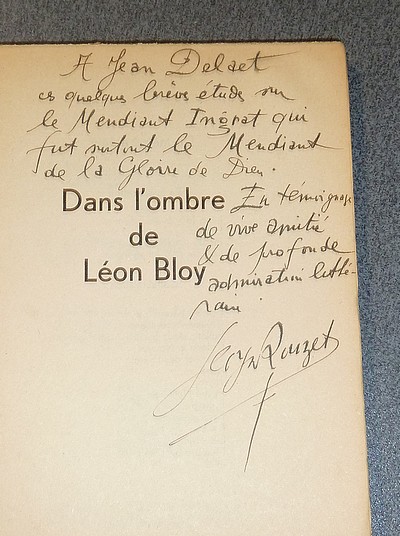 A Jean Delaet
ces quelques brèves études sur
le Mendiant Ingrat qui
fut surtout le Mendiant
de la Gloire de Dieu.
Dans l'ombre
de
Léon Bloy
En témoignage
de vive amitié
& de profonde
admiration litté-
raire.
Georges Rouzet